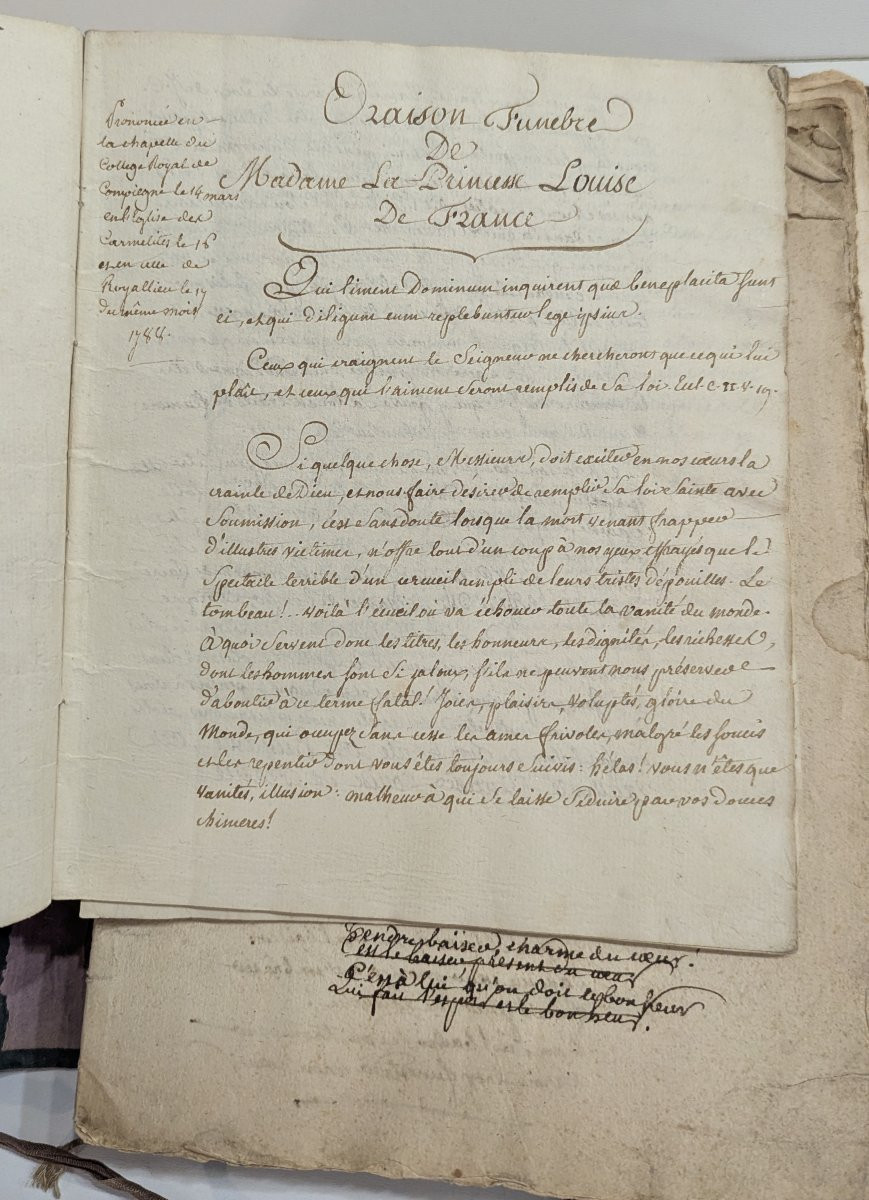 Oraison Funebre
De
Madame La Princesse Louise
De France
Prononcée en
la chapelle du
College Royal de
Compiegne le 14 mars
en l'Eglise des
Carmelites le 16
et en celle de
Royallieu le 17
du même mois
1788.
Qui timent Dominum inquirent quæ beneplacita sunt
ei, et qui diligunt eum replebuntur lege ipsius.
Ceux qui craignent le Seigneur ne chercheront que ce qui lui
plaît, et ceux qui l'aiment seront remplis de sa loi. Eccl. c. II v. 19.
Si quelque chose, Messieurs, doit exciter en nos cœurs la
crainte de Dieu, et nous faire désirer de remplir sa loi sainte avec
soumission, c'est sans doute lorsque la mort venant frapper
d'illustres victimes, n'offre tout d'un coup à nos yeux effrayés que le
spectacle terrible d'un cercueil rempli de leurs tristes dépouilles. Le
tombeau!.. voilà l'écueil où va échouer toute la vanité du monde.
à quoi servent donc les titres, les honneurs, les dignités, les richesses,
dont les hommes sont si jaloux, s'ils ne peuvent nous préserver
d'aboutir à ce terme fatal! Joies, plaisirs, voluptés, gloire du
Monde, qui occupez sans cesse les ames frivoles, malgré les soucis
et les repentirs dont vous êtes toujours suivis: hélas! vous n'êtes que
vanités, illusion: malheur à qui se laisse séduire par vos douces
chimeres!
Tendre baiser, charme du cœur!
est le baiser présent du cœur
C'est à lui qu'on doit le bonheur
Qui fait l'espoir et le bonheur.